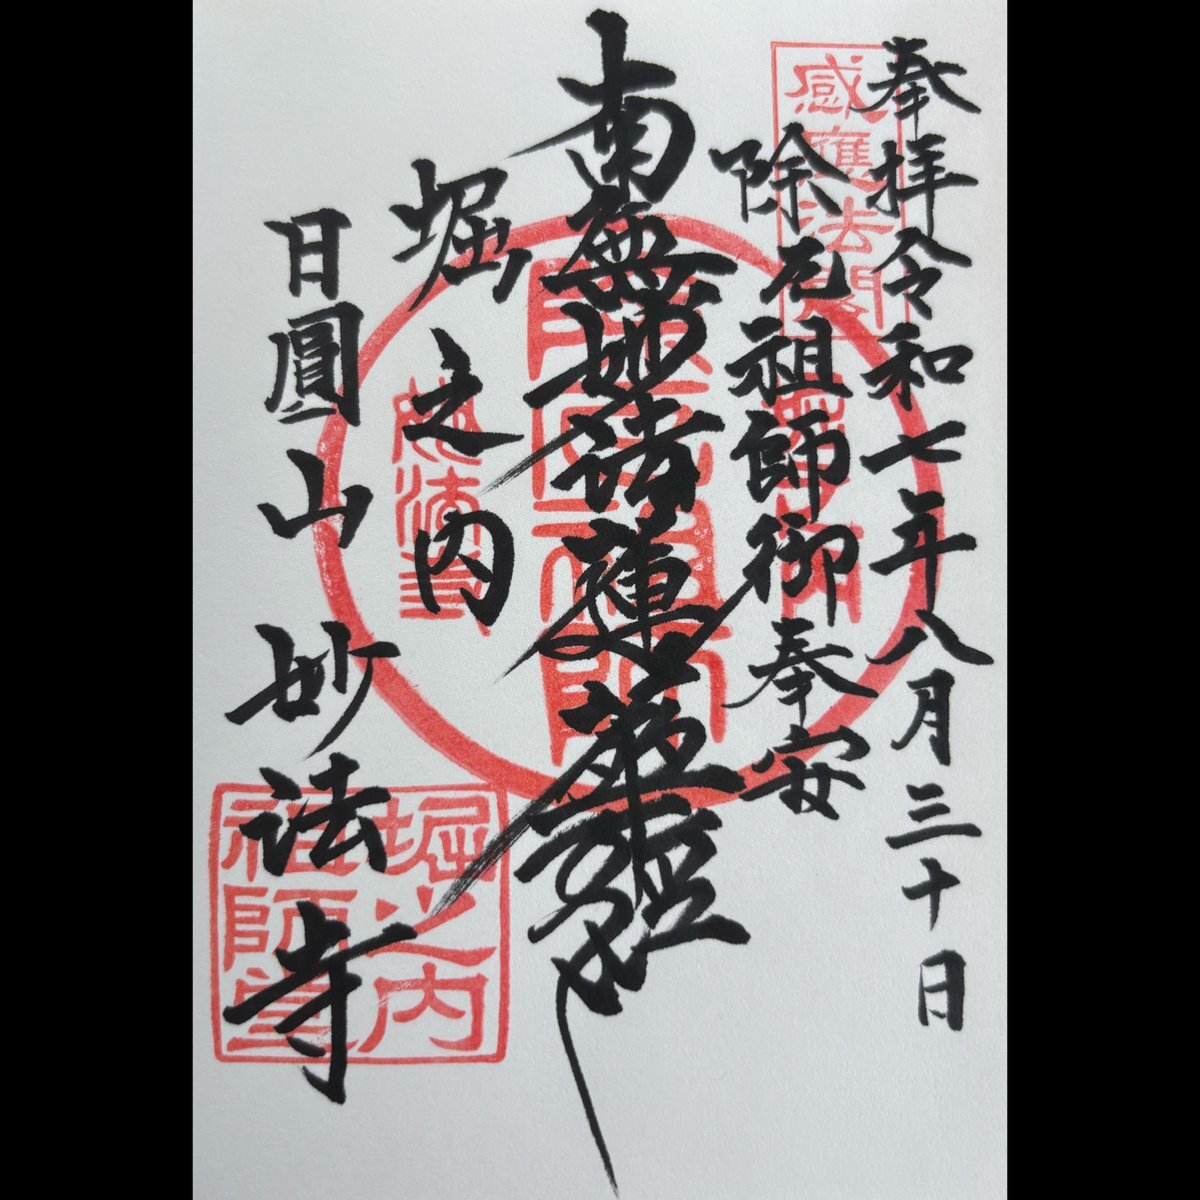 奉拝令和七年八月三十日
除厄祖師御奉安
南無妙法蓮華経
堀之内
日圓山妙法寺
感應法閣
堀之内
祖師堂